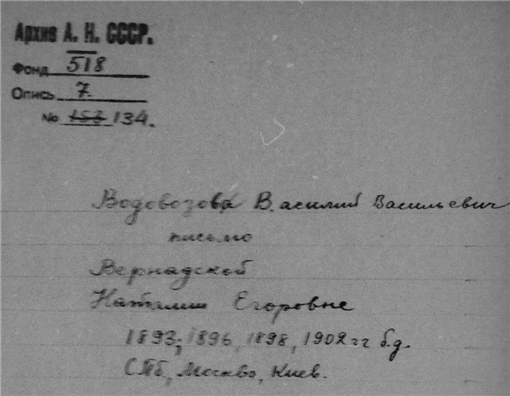 Архив А. Н. СССР.
Фонд 518
Опись 7.
№ 153 134.
Водовозова Василий Васильевич
письмо
Вернадской
Наталии Егоровне
1893, 1896, 1898, 1902 гг б.д.
СПб., Москва, Киев.